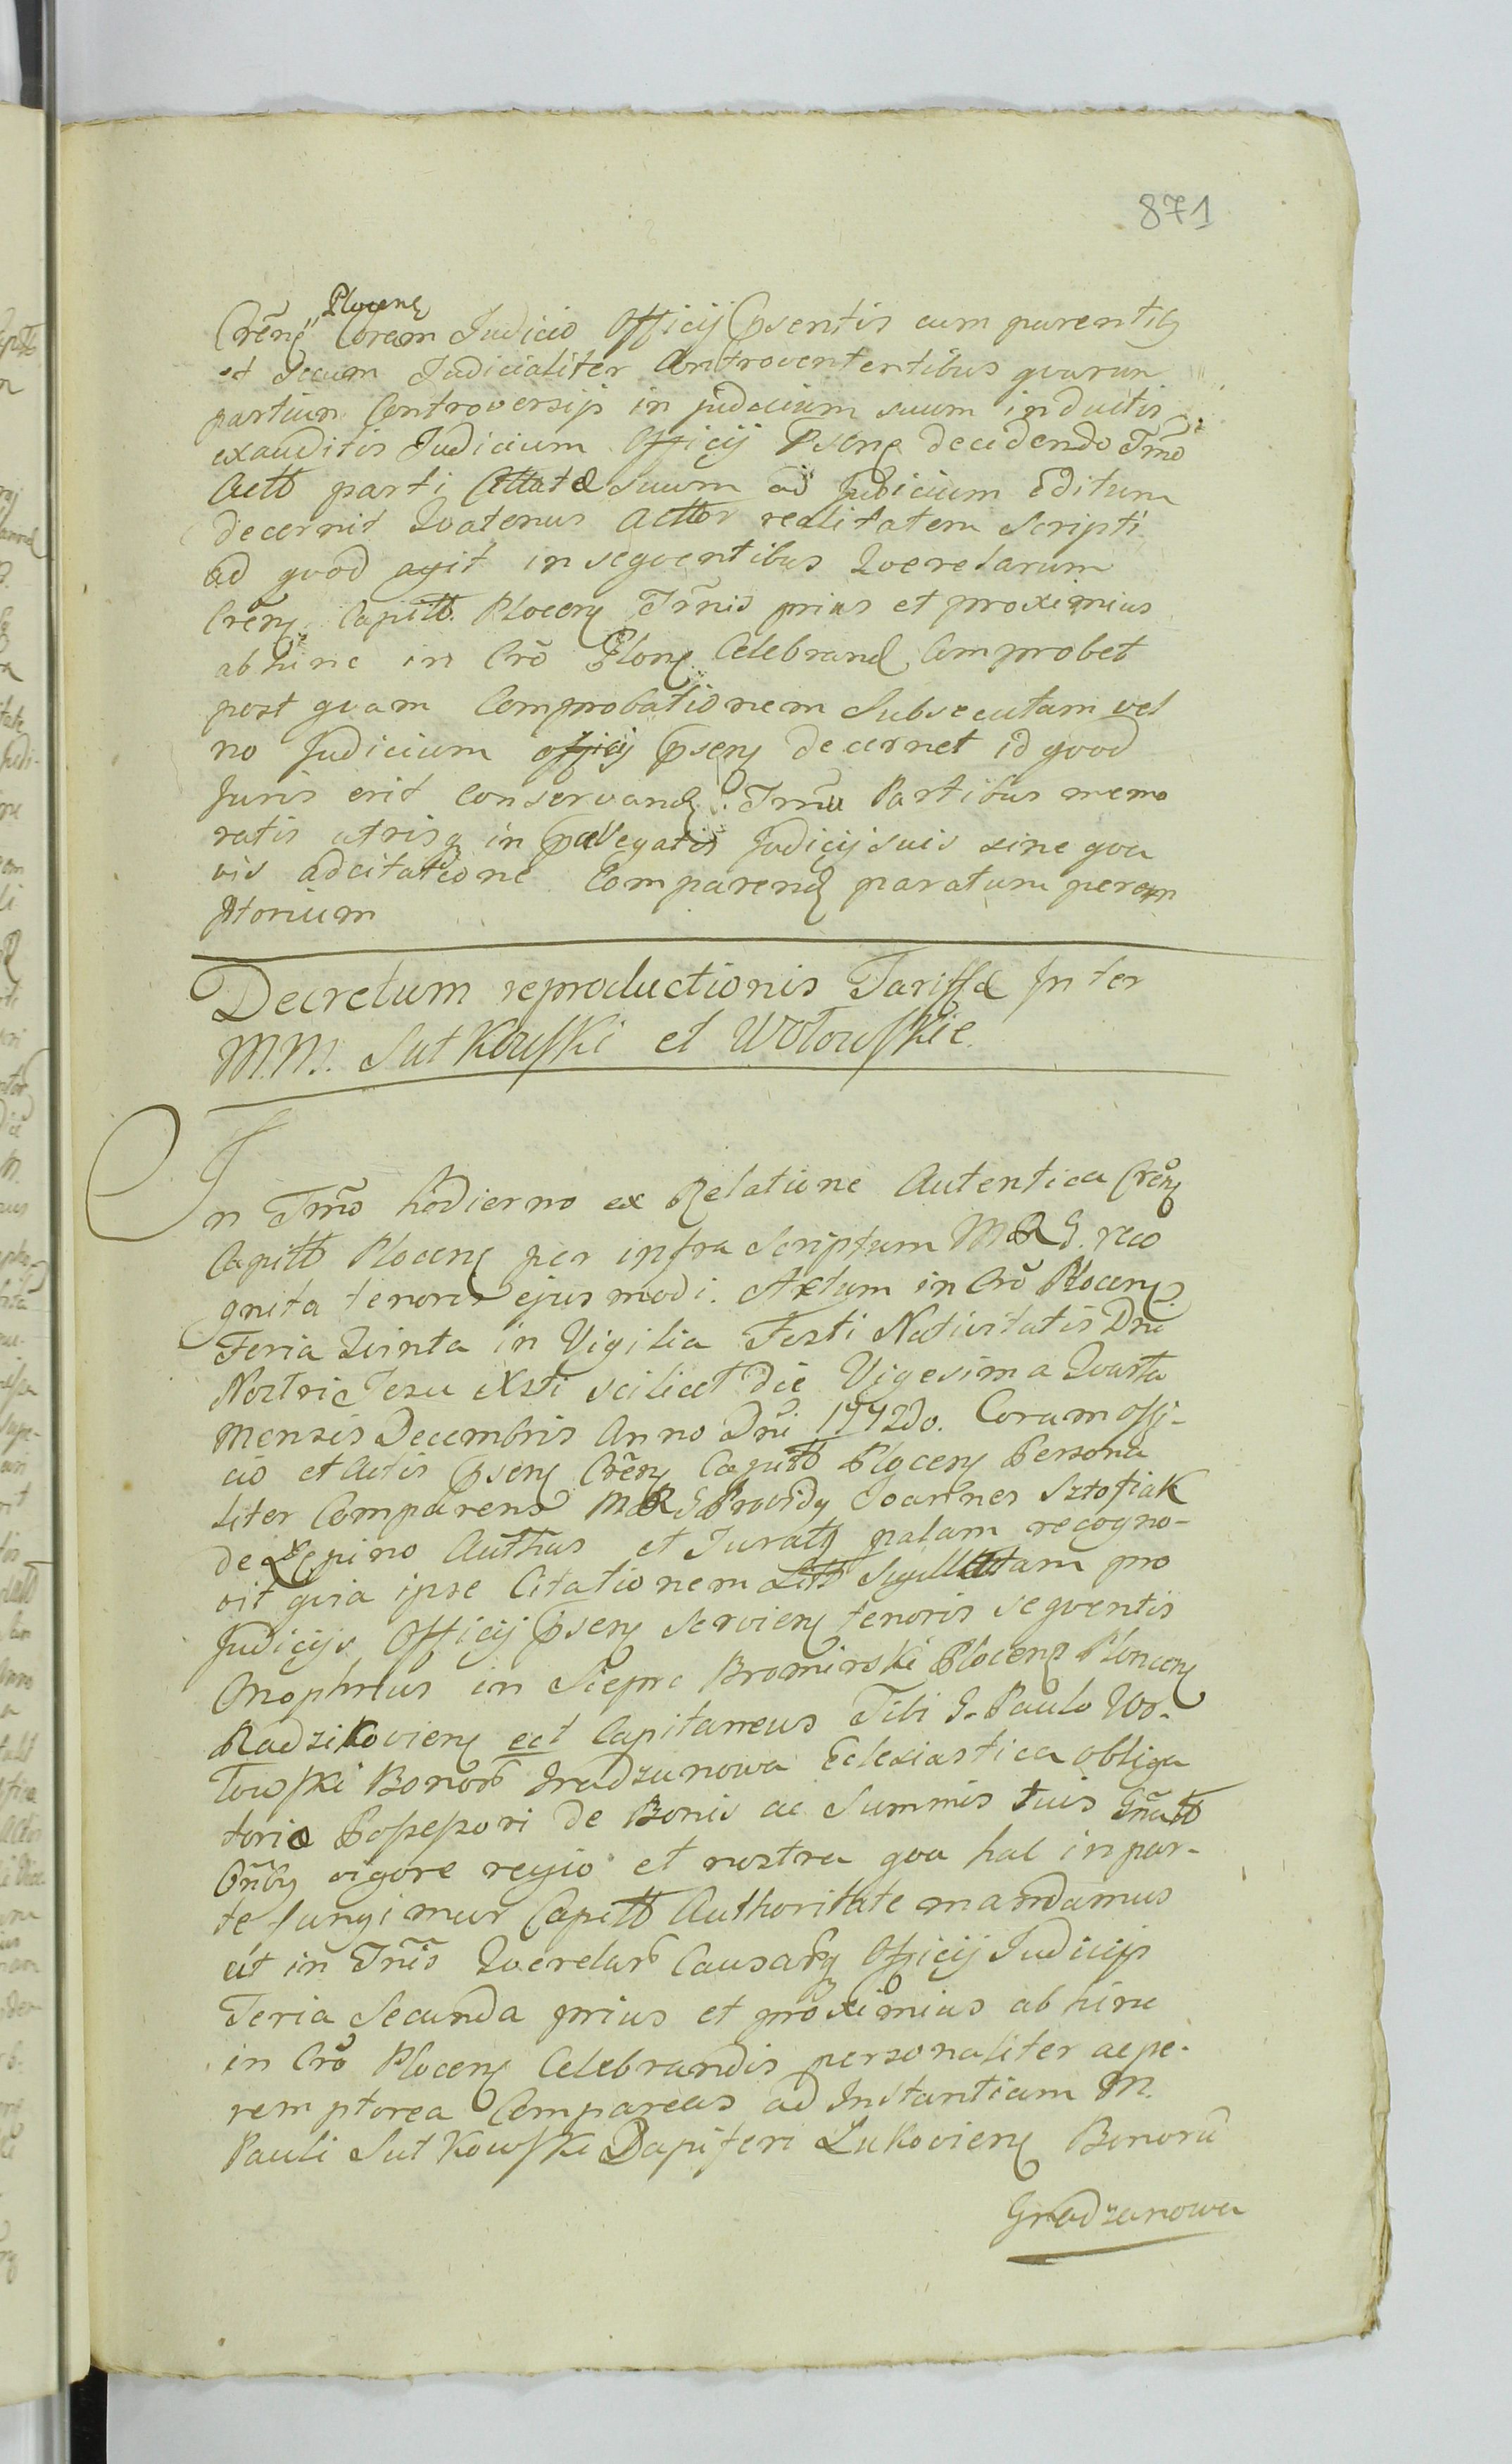 871
Crēnѕ Plocenѕ Coram Judicio Officij Pſentis cum parentibꝫ
et Secum Judicialiter Controvertentibus quarum
partium Controversijs in judicium suum inductis
exauditis Judicium Officij Psens decidendo Tm̃o
Actt parti Cittatæ suum ad Judicium Editum
decernit Qvatenus Acttor realitatem Scripti
ad qvod agit in seqventibus Qverelarum
Crēns Capitt Plocens Tr̃nis prius et proximius
abhinc in Crō Plons Celebrand Comprobet
post qvam Comprobationem Subsecutam vel
no Judicium officij Psens decernet id qvod
Juris erit conservand. Tm̃u Partibus memo
ratis utrisq in Pallegatis Judicijs suis sine qva
vis adcitatione Comparend paratum perem
ptorium
Decretum reproductionis Tariffæ Inter
M.M. Sutkowſki et Wołowſkie.
In Tm̃o hodierno ex Relatione Autentica Crēns
Capitt Plocens per infra Scriptum M R G. reco
gnita tenoris ejusmodi. Actum in Crō Plocens
Feria Qvinta in Vigilia Festi Nativitatis Dni
Nostri Jesu Xsti scilicet die Vigesima Qvarta
Mensis Decembris Anno Dni 1772do. Coram offi-
cio et Actis Psens Crēns Capitt Plocens Persona
liter Comparens M R G Providꝯ Joannes Sztofiak
de Lepino Authus et Juratꝯ palam recogno-
vit qvia ipse Citationem Litt Sigillatam pro
Judicijs Officij Psens Serviens tenoris seqventis
Onophrius in Siepre Bromirski Plocens Plonens
Radzikoviens ect Capitaneus Tibi G. Paulo Wo-
łowſki Bonorꝝ Gradzanowa Eclesiastica obliga
torio Poſseſsori de Bonis ac Summis tuis Gn̄alibꝫ
On̄ibꝫ vigore regio et nostra qva hac in par-
te fungimur Capitt Authoritate mandamus
ut in Tr̃nis Qverelarꝝ Causarꝝq Officij Judicijs
Feria Secunda prius et proximius abhinc
in Crō Plocens Celebrandis personaliter ac pe-
remptorea Compareas ad Instantiam M.
Pauli Sutkowſki Dapiferi Lukoviens Bonorū
Gradzanowa